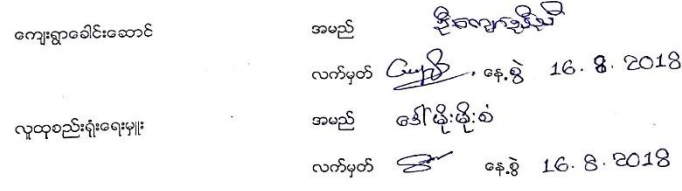 ကျေးရွာခေါင်းဆောင် အမည်
လက်မှတ် နေ့စွဲ 16.8.2018
လူထုစည်းရုံးရေးမှူး အမည် ဒေါ်မိုးမိုးစံ
လက်မှတ် နေ့စွဲ 16.8.2018